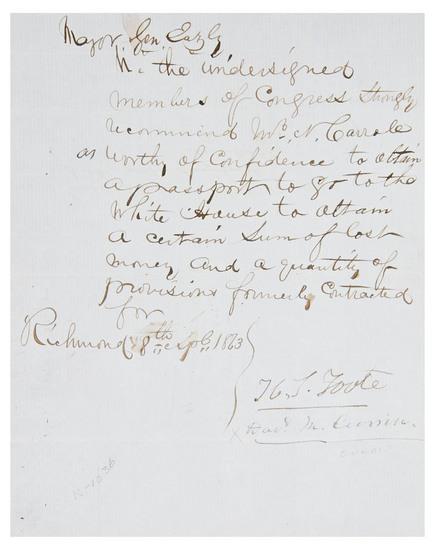 Major. Gen. Early
We the undersigned
members of Congress Strongly
recommend Mr. N. Carrole
as worthy of Confidence to obtain
a passport to go to the
White House to obtain
a certain Sum of lost
money and a quantity of
provisions formerly Contracted
for
Richmond 8th 1863
H. S. Foote
David M. Currin